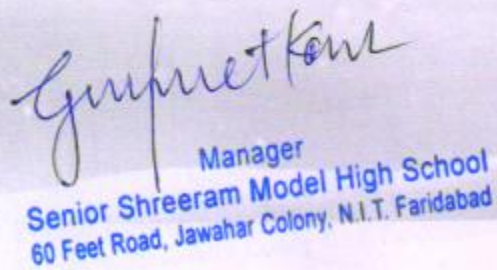 Gurpreet Kaur
Manager
Senior Shreeram Model High School
60 Feet Road, Jawahar Colony, N.I.T. Faridabad